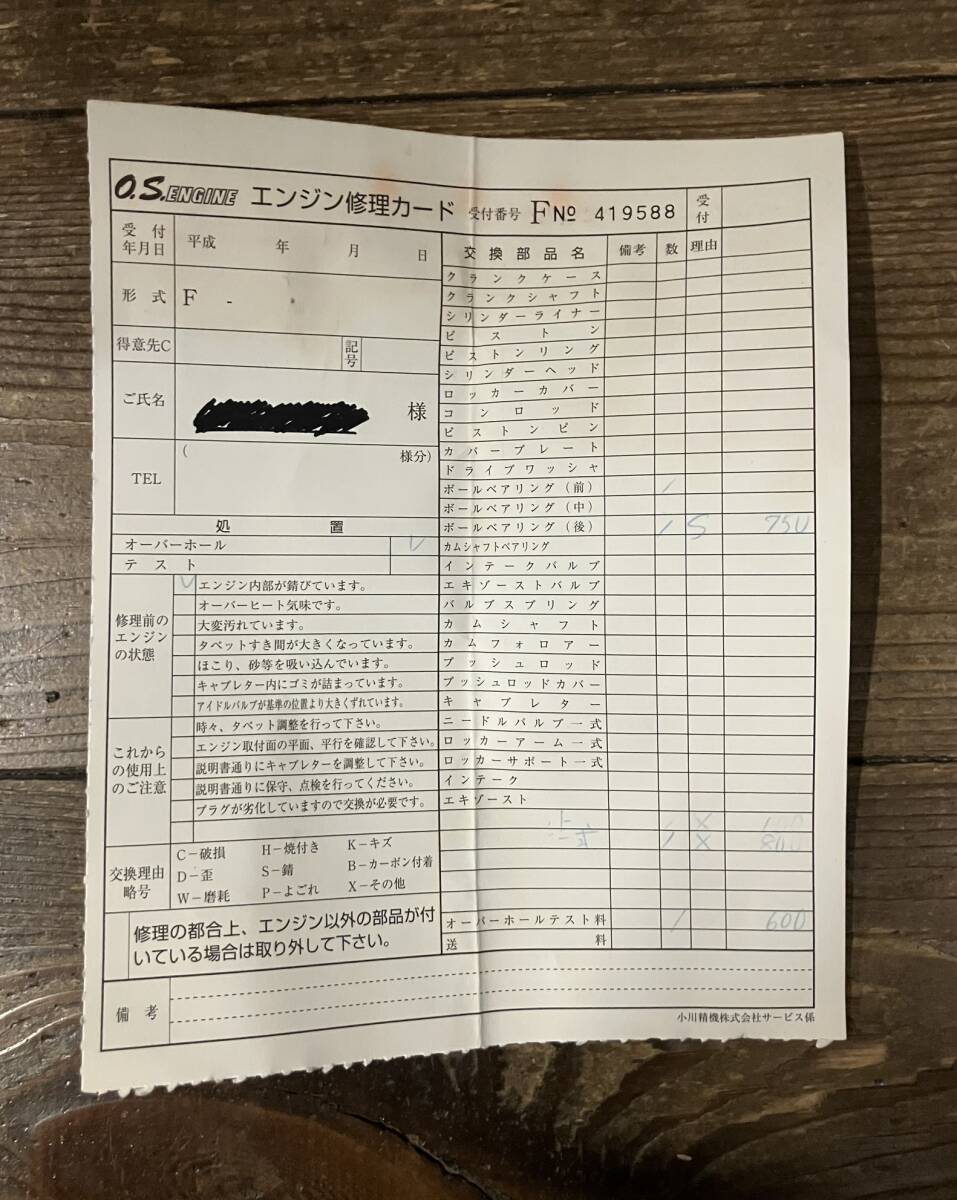 O.S.ENGINE エンジン修理カード 受付番号 F№ 419588 受付
受付年月日 平成 年 月 日
形式 F -
得意先C 記号
ご氏名 様
TEL ( 様分)
処置
オーバーホール
テスト
修理前のエンジンの状態
エンジン内部が錆びています。
オーバーヒート気味です。
大変汚れています。
タペットすき間が大きくなっています。
ほこり、砂等を吸い込んでいます。
キャブレター内にゴミが詰まっています。
アイドルバルブが基準の位置より大きくずれています。
これからの使用上のご注意
時々、タペット調整を行って下さい。
エンジン取付面の平面、平行を確認して下さい。
説明書通りにキャブレターを調整して下さい。
説明書通りに保守、点検を行ってください。
プラグが劣化していますので交換が必要です。
交換理由略号
C−破損 H−焼付き K−キズ
D−歪 S−錆 B−カーボン付着
W−磨耗 P−よごれ X−その他
修理の都合上、エンジン以外の部品が付
いている場合は取り外して下さい。
交換部品名 備考 数 理由
クランクケース
クランクシャフト
シリンダーライナー
ピストン
ピストンリング
シリンダーヘッド
ロッカーカバー
コンロッド
ピストンピン
カバープレート
ドライブワッシャ
ボールベアリング(前) 1
ボールベアリング(中)
ボールベアリング(後) 1 S 750
カムシャフトベアリング
インテークバルブ
エキゾーストバルブ
バルブスプリング
カムシャフト
カムフォロアー
プッシュロッド
プッシュロッドカバー
キャブレター
ニードルバルブ一式
ロッカーアーム一式
ロッカーサポート一式
インテーク
エキゾースト
X
1 X
オーバーホールテスト料 1 600
送料
備考
小川精機株式会社サービス係